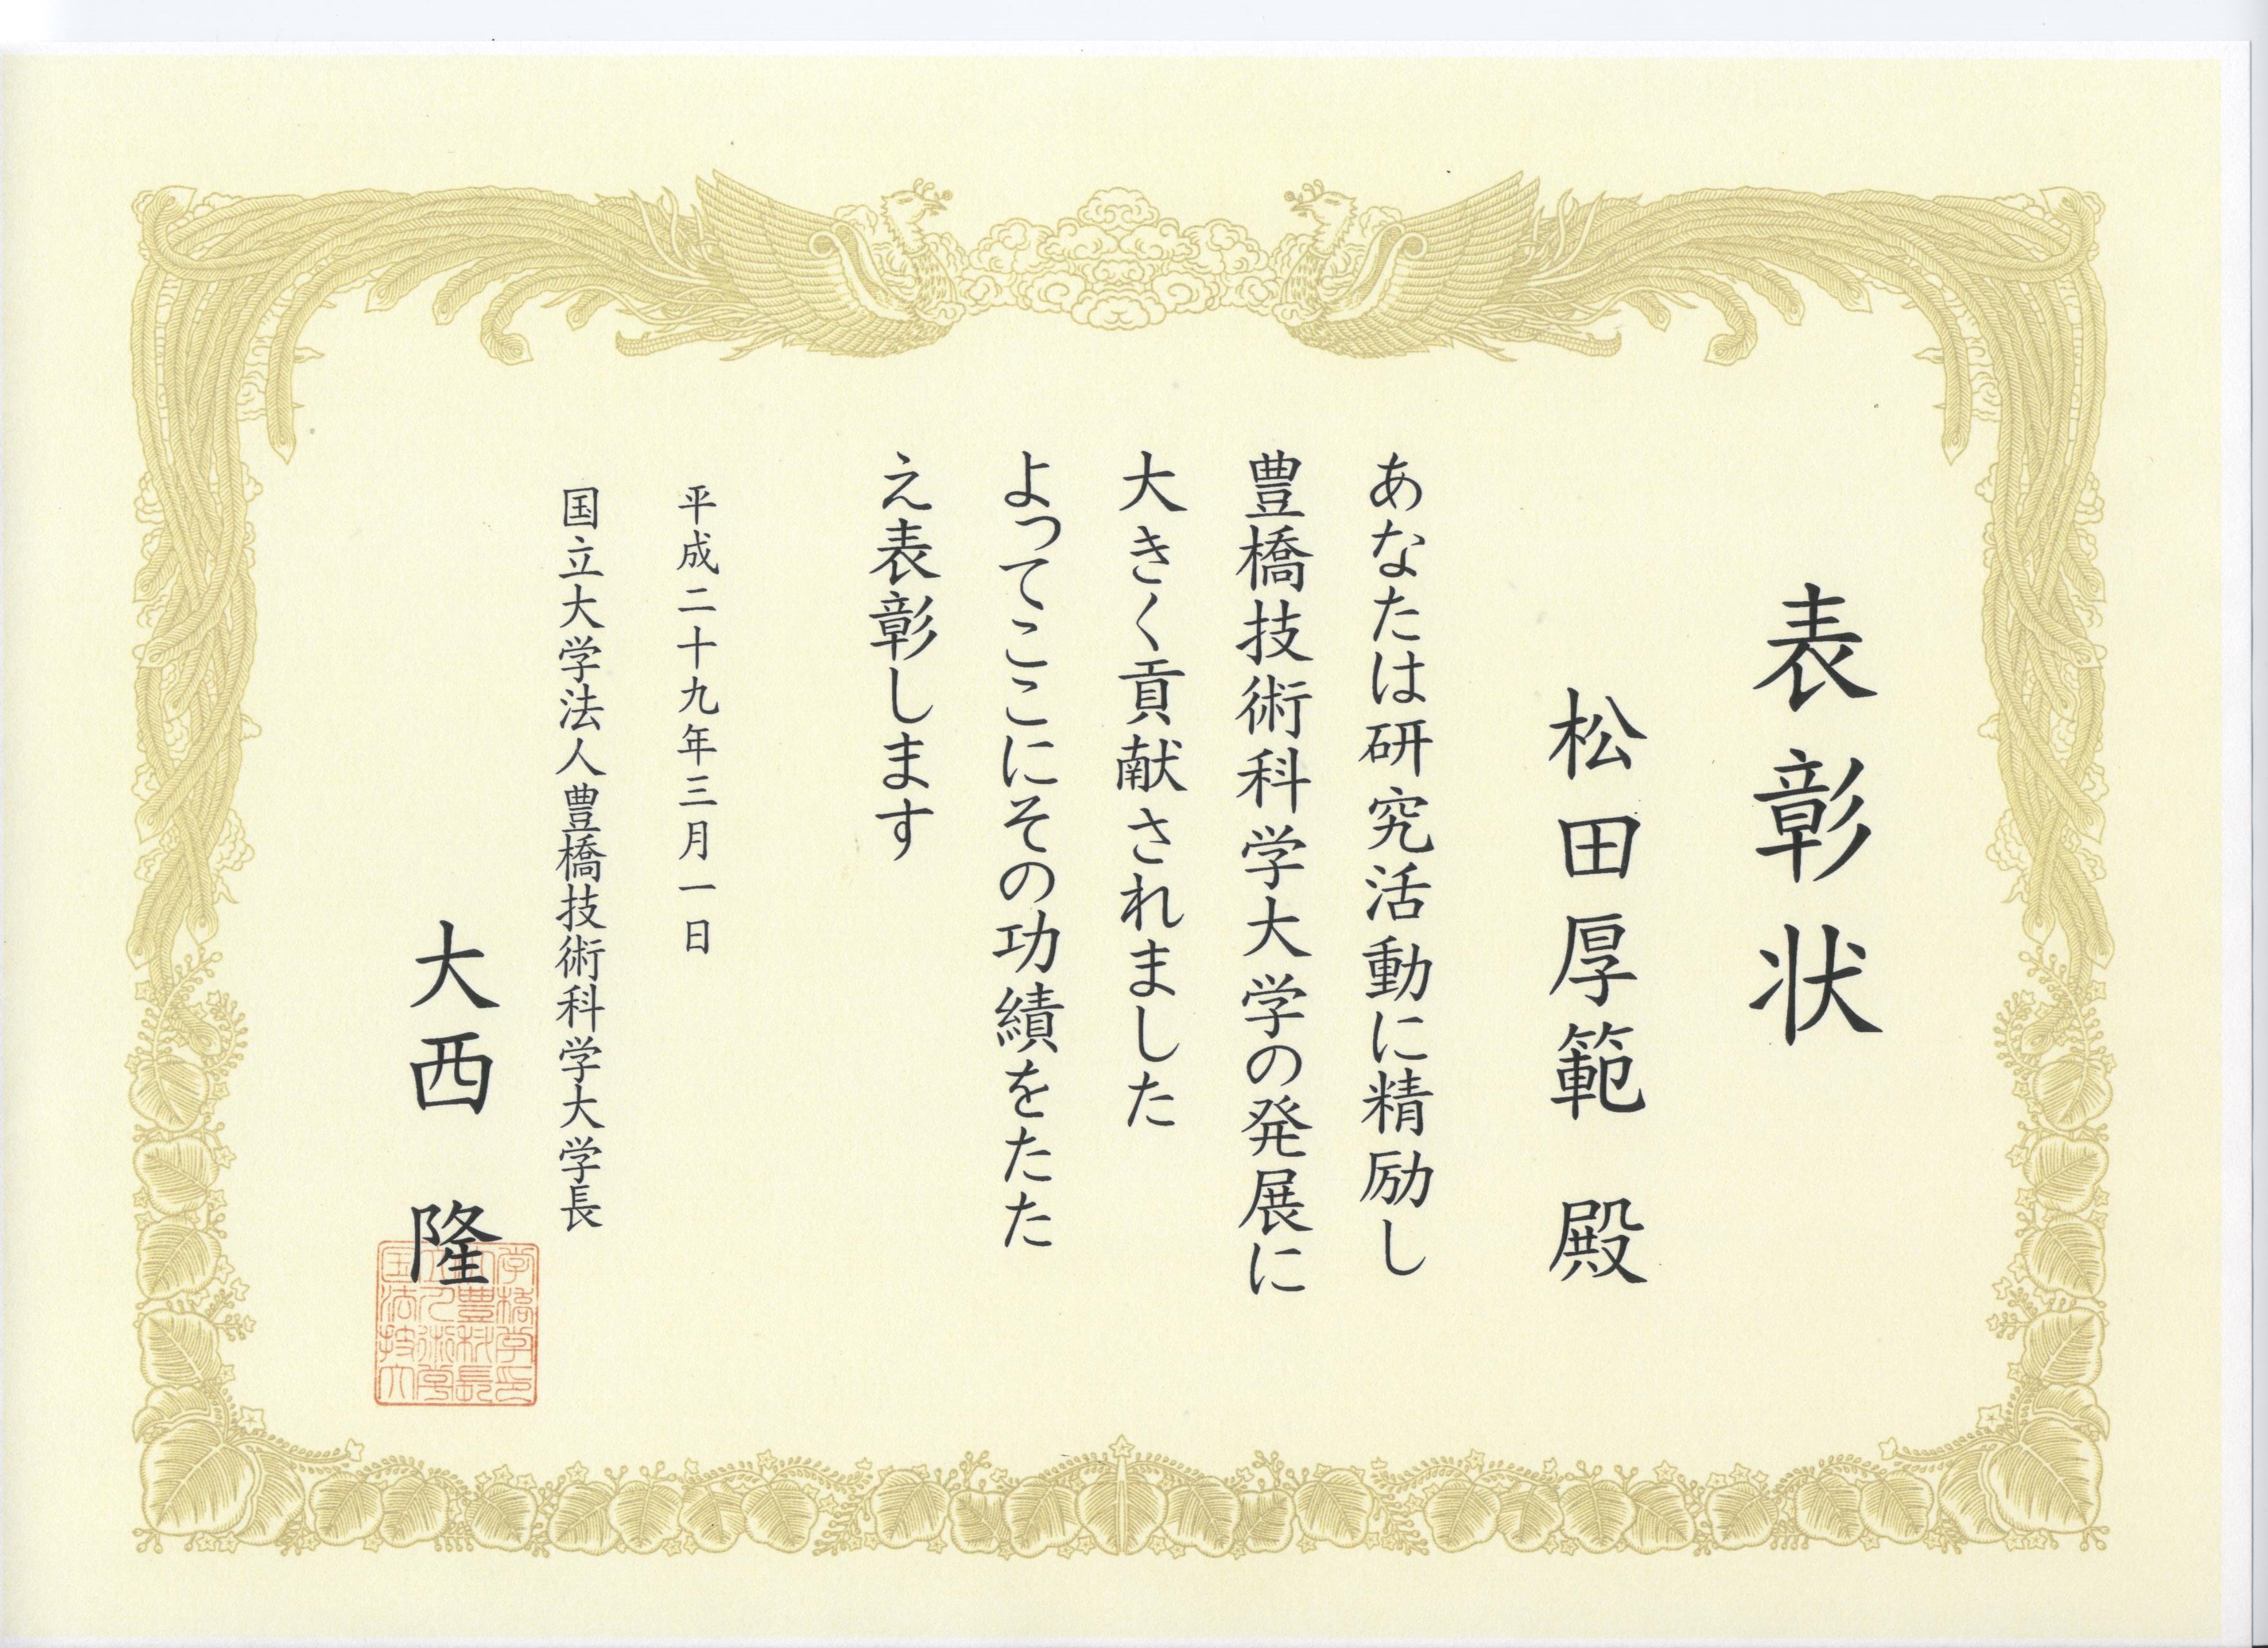 表彰状
松田厚範 殿
あなたは研究活動に精励し
豊橋技術科学大学の発展に
大きく貢献されました
よってここにその功績をたた
え表彰します
平成二十九年三月一日
国立大学法人豊橋技術科学大学長
大西 隆